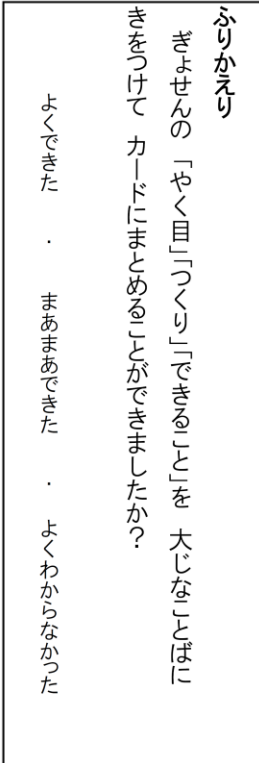 ふりかえり
ぎょせんの「やく目」「つくり」「できること」を　大じなことばに
きをつけて　カードにまとめることができましたか？
よくできた　・　まあまあできた　・　よくわからなかった